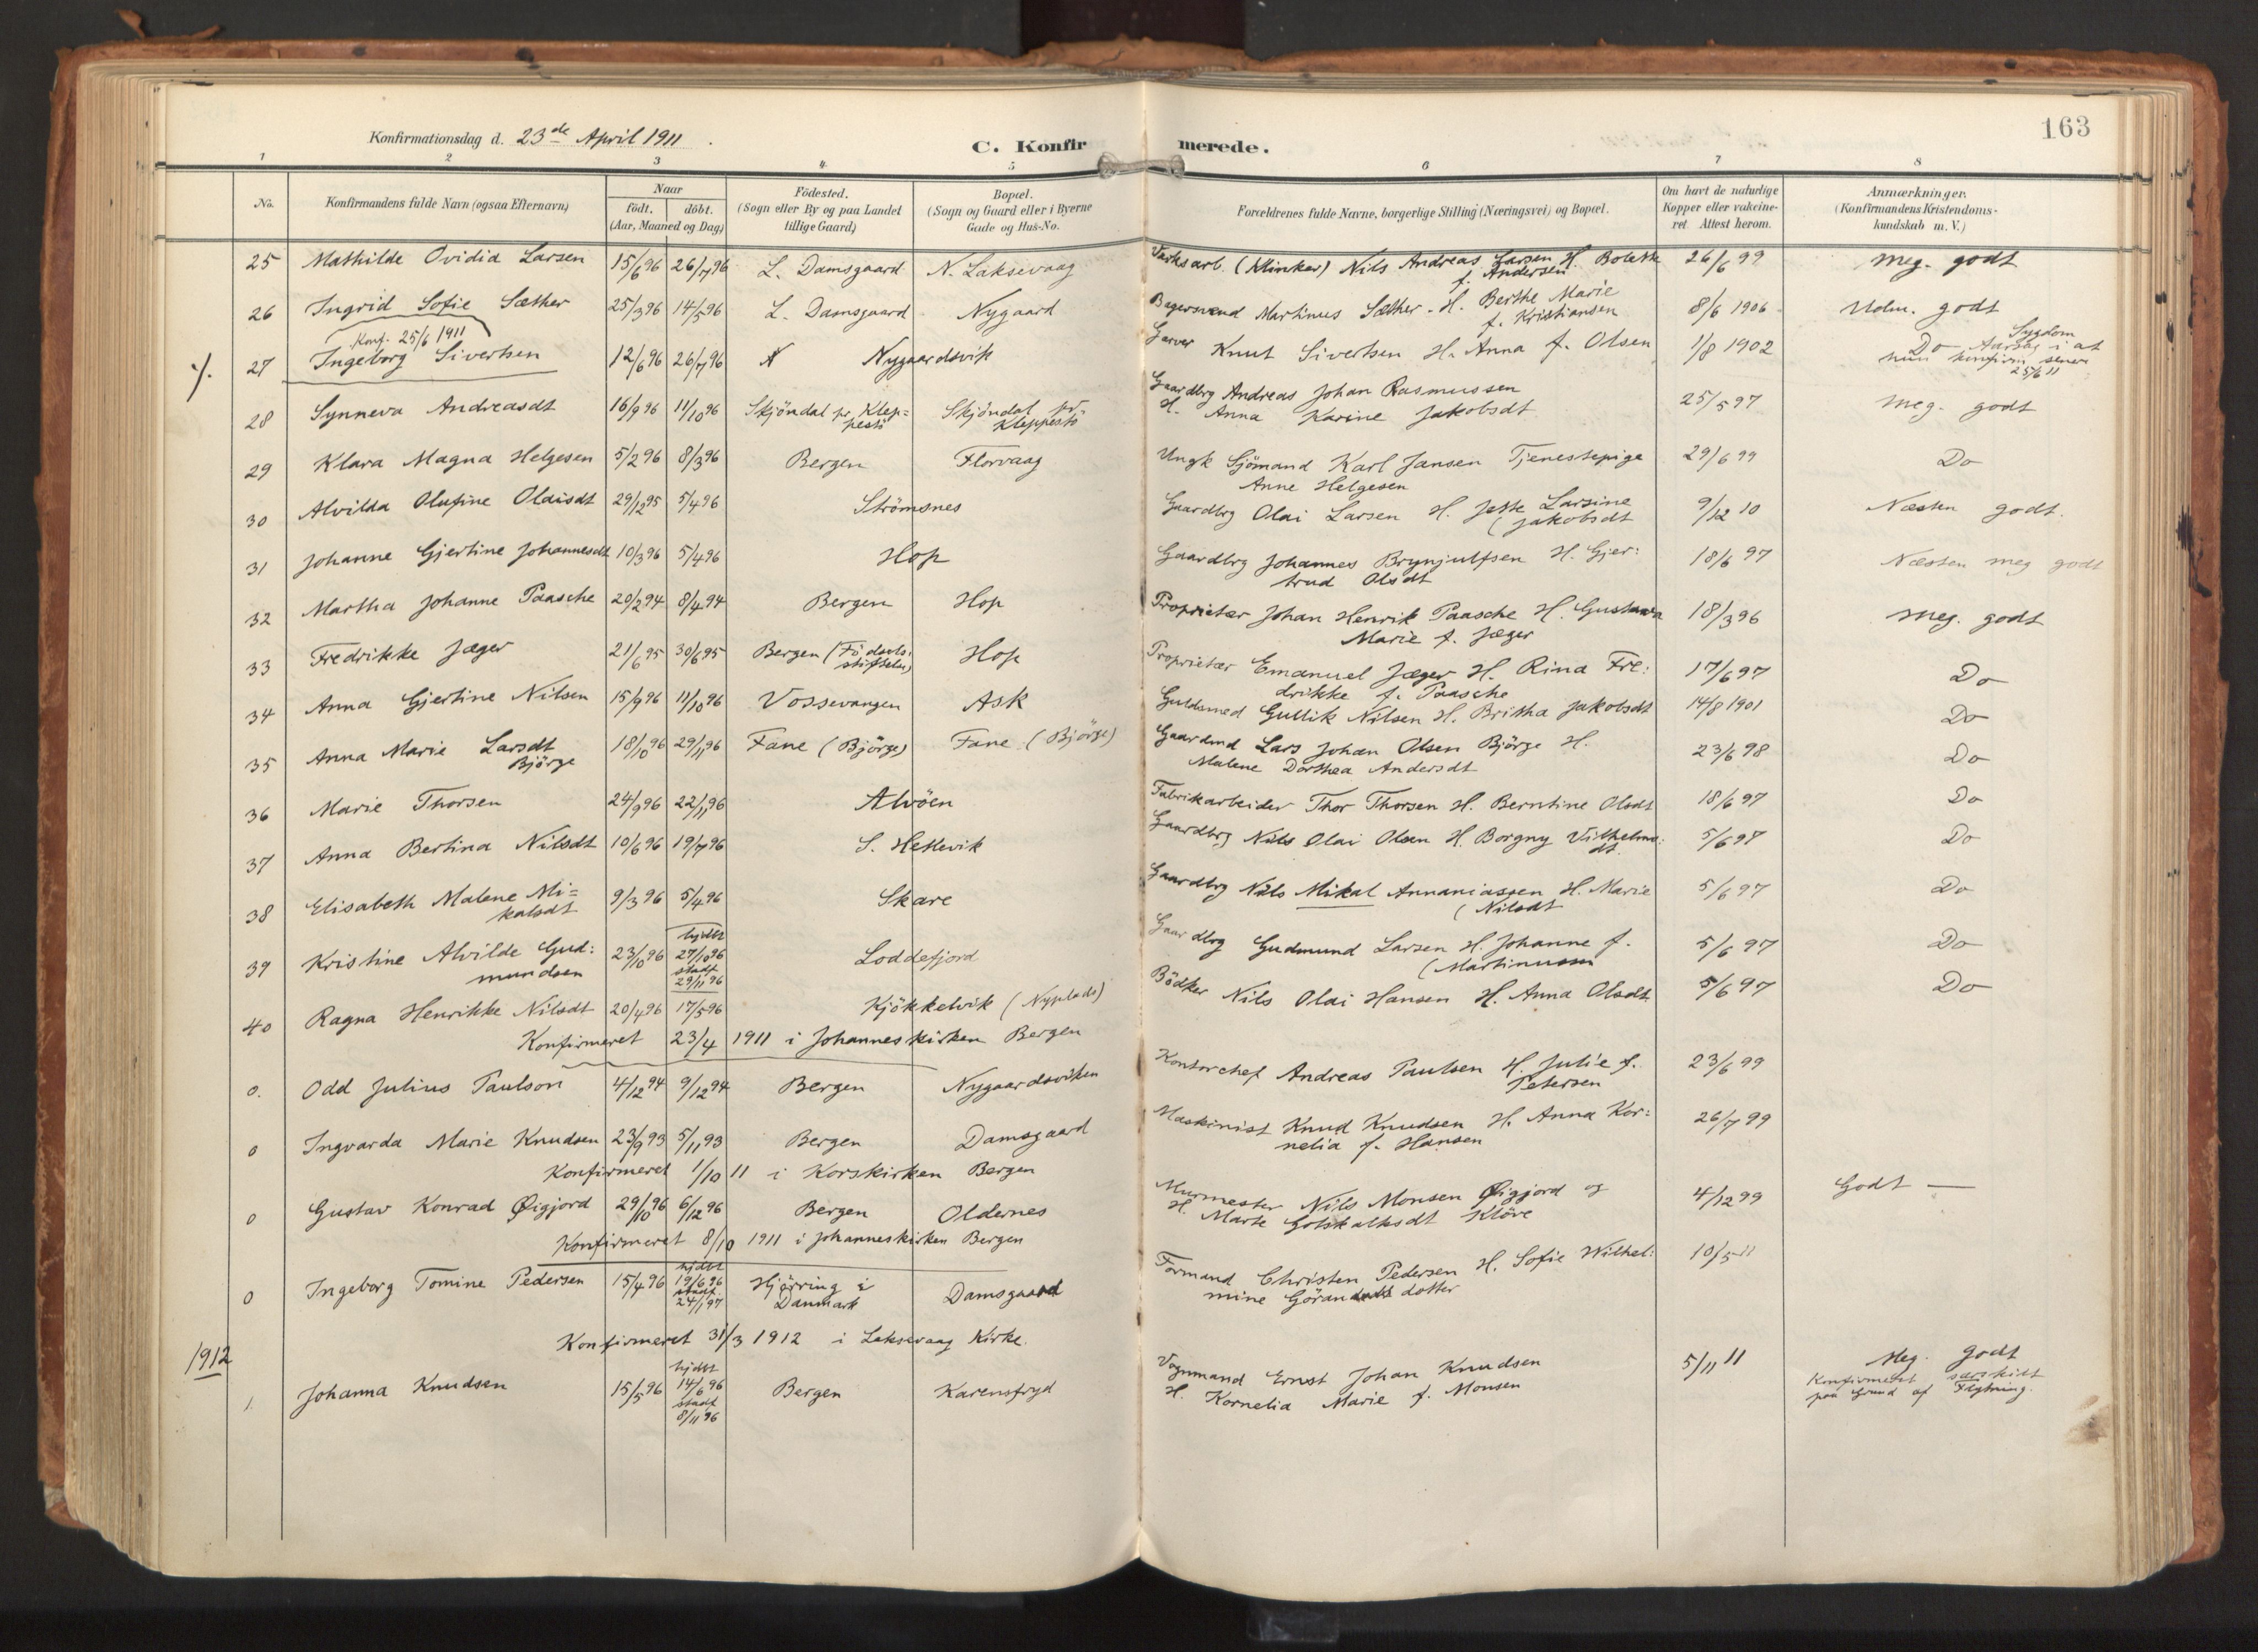 163
Konfirmationsdag d. 23de April 1911.
C. Konfirmerede.
1 2 3 4 5 6 7 8
No. Konfirmandens fulde Navn (ogsaa Efternavn) Naar født, døbt. (Aar, Maaned og Dag) Fødested. (Sogn eller By og paa Landet tillige Gaard) Bopæl. (Sogn og Gaard eller i Byerne Gade og Hus-No. Forældrenes fulde Navne, borgerlige Stilling (Næringsvei) og Bopæl. Om havt de naturlige Kopper eller vakcineret. Attest herom. Anmærkninger. (Konfirmandens Kristendomskundskab m. V.)
25 Mathilde Ovidia Larsen 15/6 96 26/7 96 L. Damsgaard N. Laksevaag Værksarb. (Klinker) Nils Andreas Larsen H. Bolette 26/6 99 Meg. godt
f. Andersen
26 Ingrid Sofie Sæther 25/3 96 14/5 96 L. Damsgaard Nygaard Bagersvend Martinus Sæther. H. Berthe Marie 8/6 1906 Udm. godt
f. Kristiansen
Konf. 25/6 1911
27 Ingeborg Sivertsen 12/6 96 26/7 96 Nygaardsvik Garver Knut Sivertsen H. Anna f. Olsen 1/8 1902 Do Sygdom Aarsag i at
hun konfirm. senere
25/6 11
28 Synneva Andreasdt 16/9 96 11/10 96 Skjöndal pr. Klep=
pestö Skjöndal pr.
Kleppestö Gaardbrg Andreas Johan Rasmussen
H. Anna Karine Jakobsdt 25/5 97 Meg. godt
29 Klara Magna Helgesen 5/2 96 8/3 96 Bergen Florvaag Ungk Sjömand Karl Jansen Tjenestepige 29/6 99 Do
Anne Helgesen
30 Alvilda Olufine Olaisdt 29/12 95 5/4 96 Strömsnes Gaardbrg Olai Larsen H. Jette Larsine 9/12 10 Næsten godt.
(Jakobsdt
31 Johanne Gjertine Johannesdt 10/3 96 5/4 96 Hop Gaardbrg Johannes Brynjulfsen H. Gjer: 18/6 97 Næsten meg godt
trud Olsdt
32 Martha Johanne Paasche 20/2 94 8/4 94 Bergen Hop Proprietær Johan Henrik Paasche H. Gustava 18/3 96 Meg. godt
Marie f. Jæger
33 Fredrikke Jæger 21/6 95 30/6 95 Bergen (Födsels:
stiftelse) Hop Proprietær Emanuel Jæger H. Rina Fre: 17/6 97 Do
drikke f. Paasche
34 Anna Gjertine Nilsen 15/9 96 11/10 96 Vossevangen Ask Guldsmed Gullik Nilsen H. Britha Jakobsdt 14/8 1901 Do
35 Anna Marie Larsdt
Björge 18/10 96 29/11 96 Fane (Björge) Fane (Björge) Gaardmd Lars Johan Olsen Björge H.
Malene Dorthea Andersdt 23/6 98 Do
36 Marie Thorsen 24/9 96 22/11 96 Alvöen Fabrikarbeider Thor Thorsen H. Berntine Olsdt 18/6 97 Do
37 Anna Bertina Nilsdt 10/6 96 19/7 96 S. Hetlevik Gaardbrg Nils Olai Olsen H. Borgny Vilhelms:
dt. 5/6 97 Do
38 Elisabeth Malene Mi=
kalsdt 9/3 96 5/4 96 Skare Gaardbrg Nils Mikal Annaniassen H. Marie 5/6 97 Do
(Nilsdt
39 Kristine Alvilde Gud:
mundsen 23/10 96 hjdbt
27/10 96
stadf.
29/11 96 Loddefjord Gaardbrg Gudmund Larsen H. Johanne f. 5/6 97 Do
(Martinussen
40 Ragna Henrikke Nilsdt 20/4 96 17/5 96 Kjökkelvik (Nyplads) Bödker Nils Olai Hansen H. Anna Olsdt 5/6 97 Do
Konfirmeret 23/4 1911 i Johanneskirken Bergen
0. Odd Julius Paulson 4/12 94 9/12 94 Bergen Nygaardsviken Kontorchef Andreas Paulsen H. Julie f. 23/6 99
Petersen
0 Ingvarda Marie Knudsen 23/9 93 5/11 93 Bergen Damsgaard Maskinist Knud Knudsen H. Anna Kor: 26/7 99
nelia f. Hansen
Konfirmeret 1/10 11 i Korskirken Bergen
0 Gustav Konrad Øigjord 29/10 96 6/12 96 Bergen Oldernes Murmester Nils Monsen Øigjord og 4/12 99 Godt —
H. Marte Gotskalksdt Klöve
Konfirmeret 8/10 1911 i Johanneskirken Bergen
0 Ingeborg Tomine Pedersen 15/4 96 hjdbt
19/6 96
stadf.
24/1 97 Hjörring i
Danmark Damsgaard Formand Christen Pedersen H. Sofie Wilhel: 10/5 11
mine dotter
Konfirmeret 31/3 1912 i Laksevaag Kirke.
1912
1. Johanna Knudsen 15/5 96 hjdbt
14/6 96
stadf.
8/11 96 Bergen Karensfryd Vognmand Ernst Johan Knudsen
H. Kornelia Marie f. Monsen 5/11 11 Meg. godt
Konfirmeret særskilt
paa Grund af Flytning.